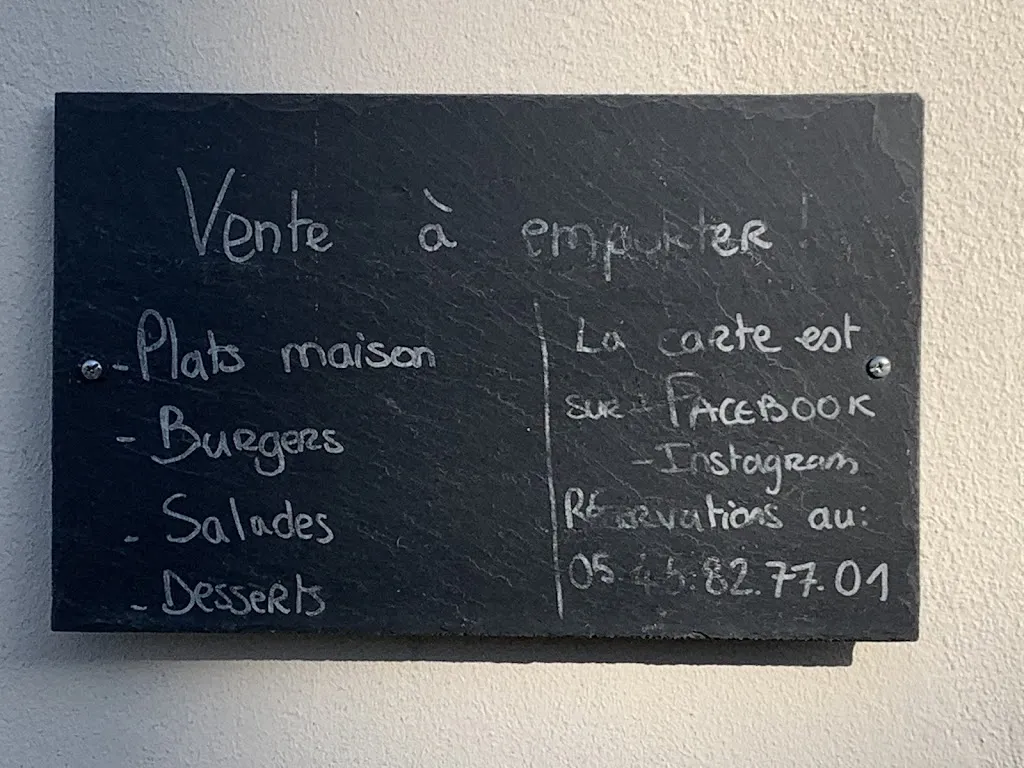 Vente à emporter !
- Plats maison
- Burgers
- Salades
- Desserts
La carte est
sur - FACEBOOK
- Instagram
Réservations au:
05.45.82.77.01